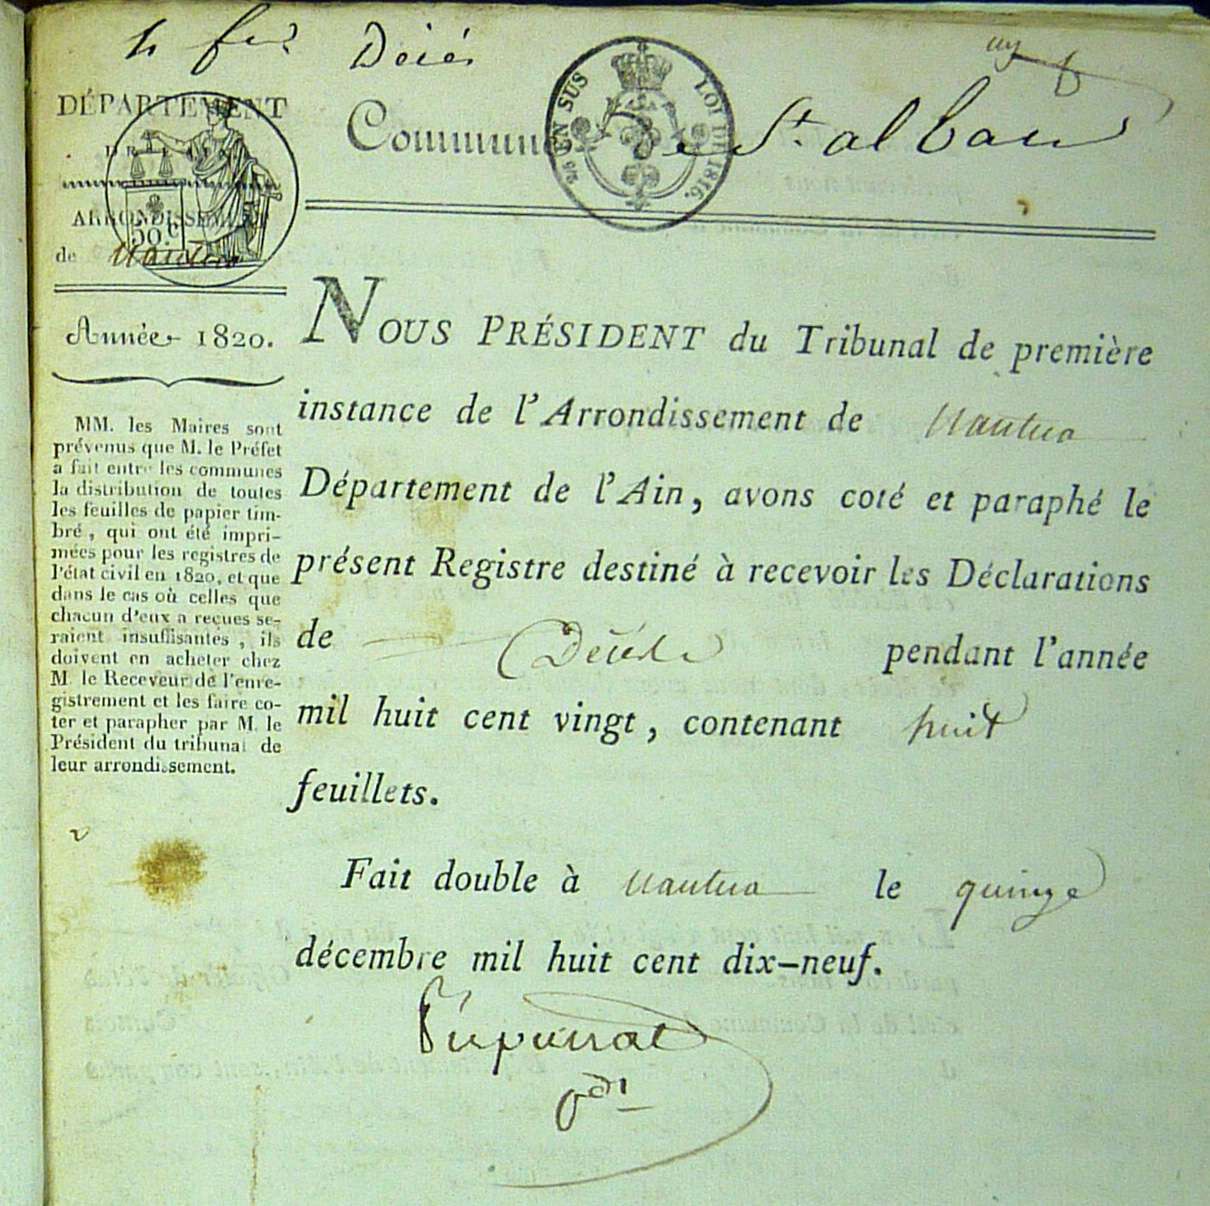 Décès
DÉPARTEMENT
DE L'AIN
ARRONDISSEMENT
de Nantua
50.c
Année 1820.
MM. les Maires sont
prévenus que M. le Préfet
a fait entre les communes
la distribution de toutes
les feuilles de papier tim-
bré, qui ont été impri-
mées pour les registres de
l'état civil en 1820, et que
dans le cas où celles que
chacun d'eux a reçues se-
raient insuffisantes, ils
doivent en acheter chez
M. le Receveur de l'enre-
gistrement et les faire co-
ter et parapher par M. le
Président du tribunal de
leur arrondissement.
EN SUS LOI DE 1816.
Commune de St alban
NOUS PRÉSIDENT du Tribunal de première
instance de l'Arrondissement de Nantua
Département de l'Ain, avons coté et paraphé le
présent Registre destiné à recevoir les Déclarations
de Décès pendant l'année
mil huit cent vingt, contenant huit
feuillets.
Fait double à Nantua le quinze
décembre mil huit cent dix-neuf.